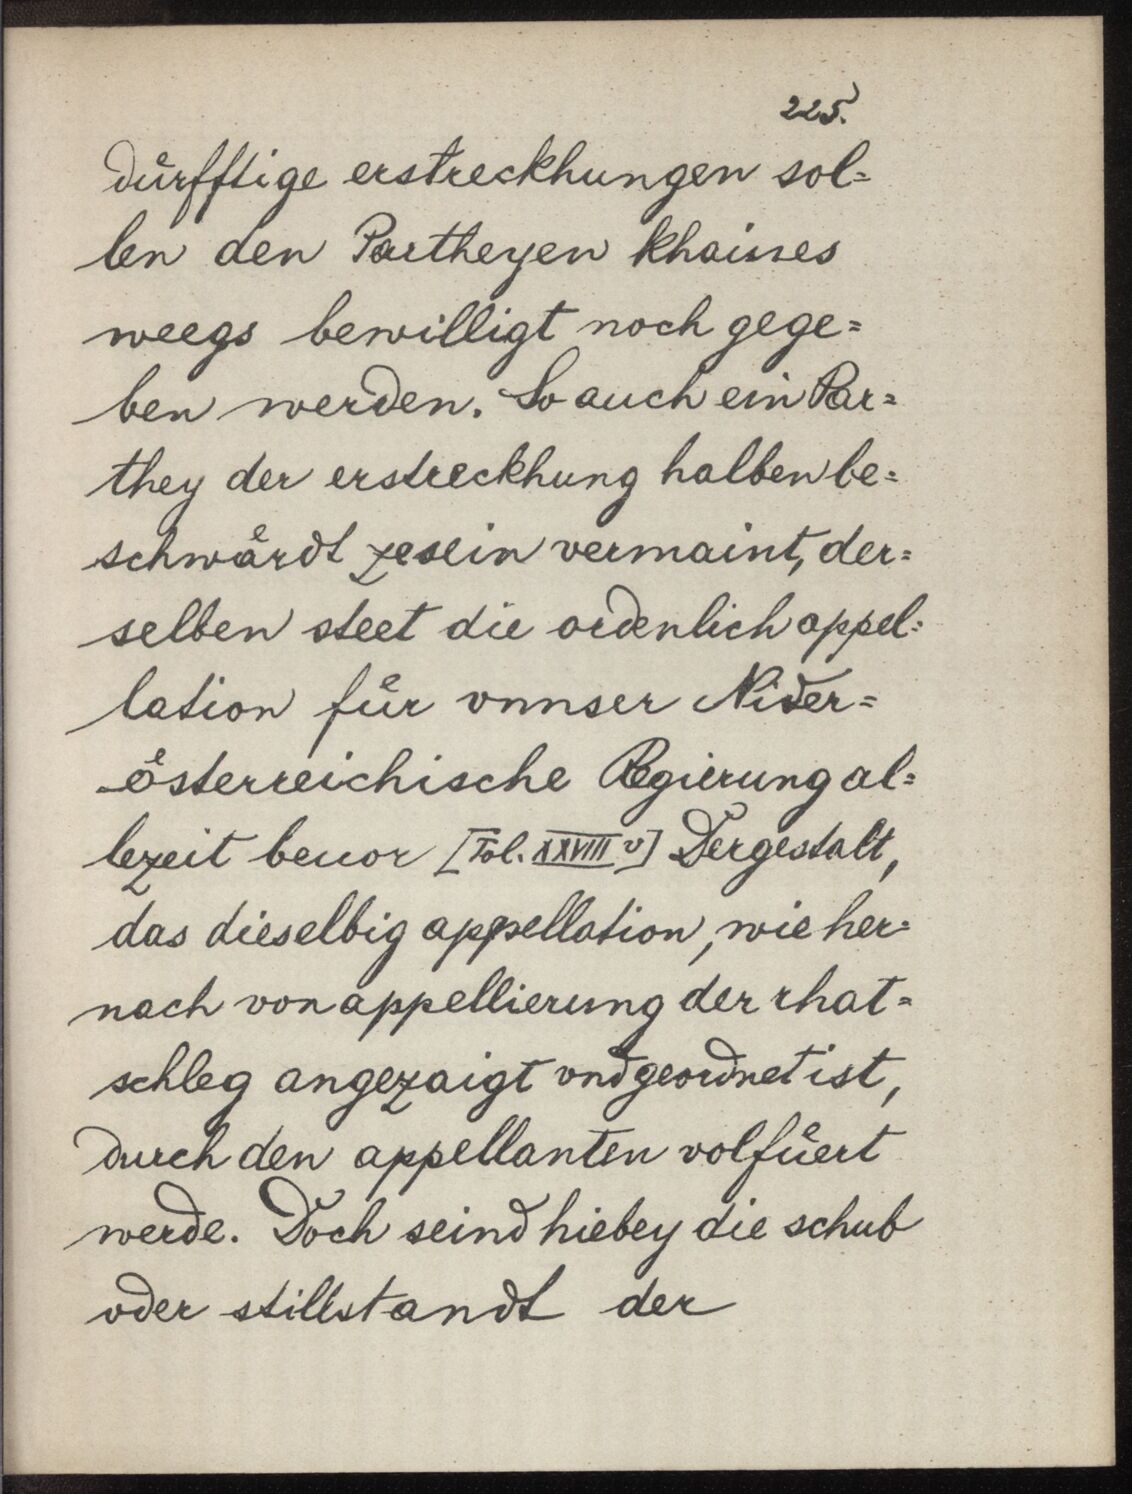 225.
dürfftige erstreckhungen sol=
len den Partheyen khaines
weegs bewilligt noch gege=
ben werden. So auch ein Par=
they der erstreckhung halben be=
schwärdt zesein vermaint, der=
selben steet die ordenlich appel=
lation für vnnser Nider=
österreichische Regierung al=
lezeit beuor [Fol. XXVIII v] Dergestalt,
das dieselbig appellation, wie her=
nach von appellierung der rhat=
schleg angezaigt vnd geordnet ist,
durch den appellanten volfüert
werde. Doch seind hiebey die schub
oder stillstandt der